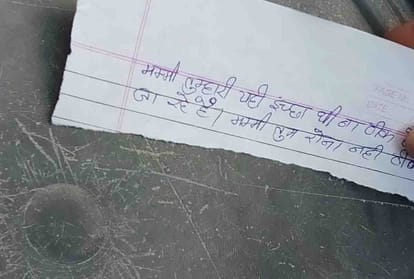 मम्मी तुम्हारी यही इच्छा थी ना ठीक
जा रहे है। मम्मी तुम रोना नही ठीक
DATE